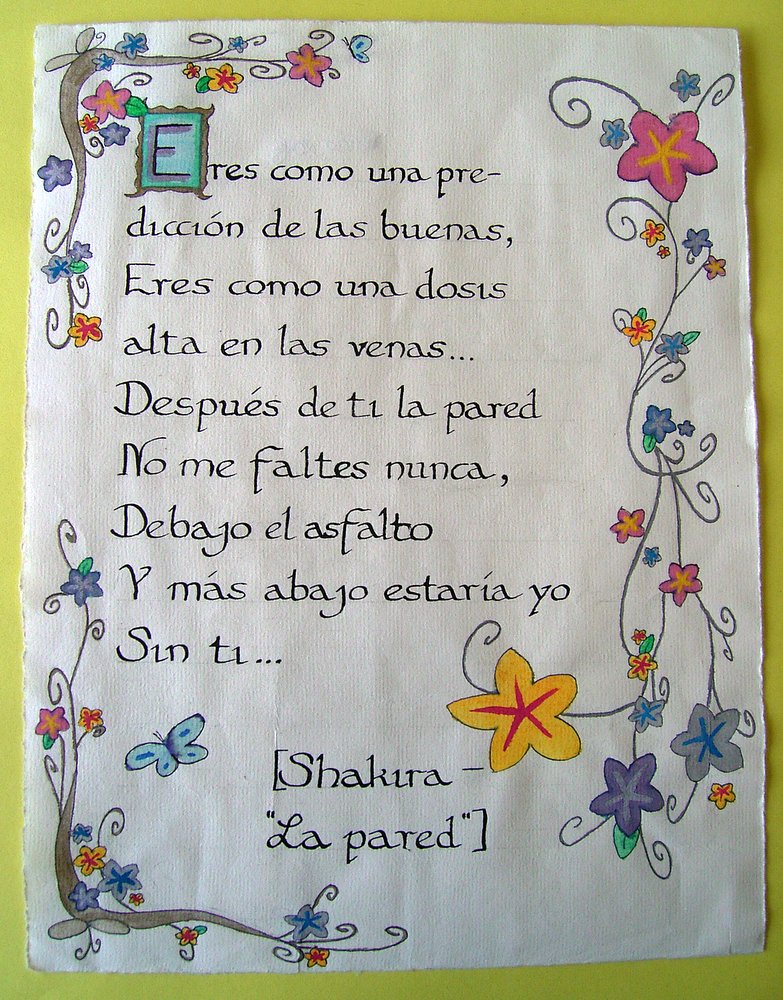 Eres como una pre-
dicción de las buenas,
Eres como una dosis
alta en las venas...
Después de ti la pared
No me faltes nunca,
Debajo el asfalto
Y más abajo estaría yo
Sin ti...
[Shakira -
"La pared"]